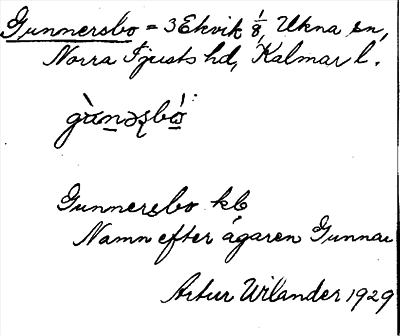 Gunnersbo = 3 Ekvik 1/8, Ukna sn,
Norra Tjusts hd, Kalmar l.
gùnəʂbó
Gunnersbo kb
Namn efter ägaren Gunnar
Artur Wilander 1929